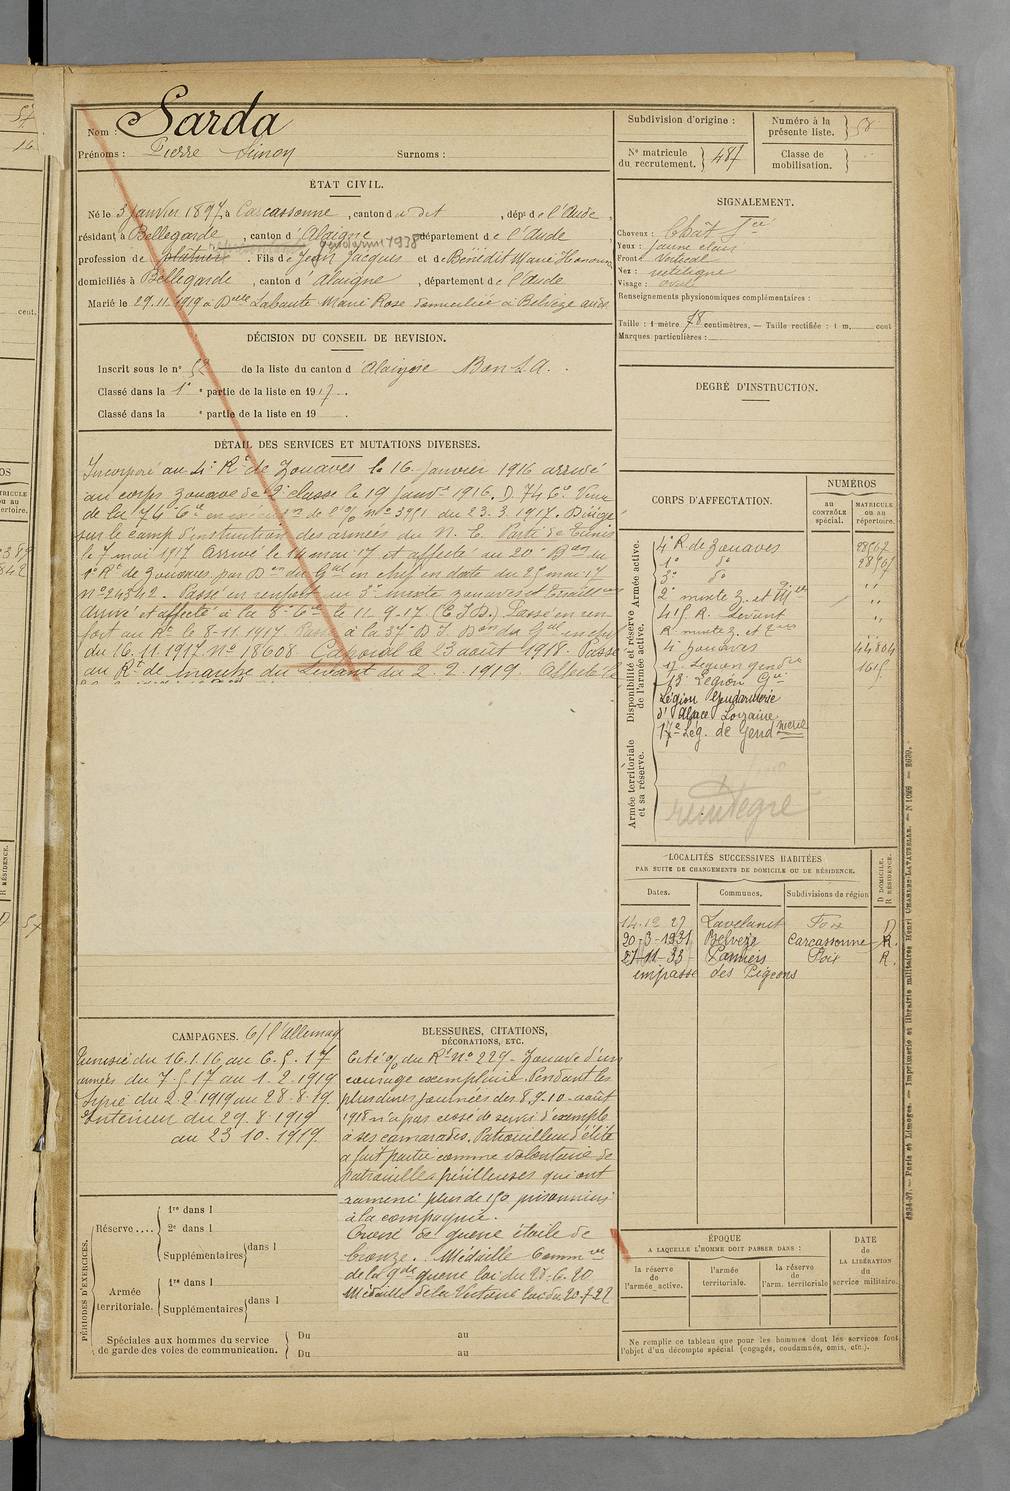 Nom : Sarda
Prénoms : Pierre Simon Surnoms :
ÉTAT CIVIL.
Né le 5 janvier 1897, à Carcassonne, canton du dit, dépt de l'Aude,
résidant à Bellegarde, canton d'Alaigne, département de l'Aude
gendarme 1938
profession de plâtrier. Fils de Jean Jacques et de Bénédit Marie Honorine
domiciliés à Bellegarde, canton d'Alaigne, département de l'Aude
Marié le 29.11.1919 à Delle Labaute Marie Rose domiciliée à Belvèze aude
DÉCISION DU CONSEIL DE REVISION.
Inscrit sous le n° 52 de la liste du canton d'Alaigne Bon S.A.
Classé dans la 1e partie de la liste en 1917.
Classé dans la e partie de la liste en 19 .
DÉTAIL DES SERVICES ET MUTATIONS DIVERSES.
Incorporé au 4e Rt de Zouaves le 16 janvier 1916 arrivé
au corps zouave de 2e classe le 19 janvr 1916. D 74 Cie Venu
de la 74e Cie en exécution de l'% n° 3951 du 23.3.1917. Dirigé
sur le camp d'instruction des armées du N. E. Parti de Tunis
le 7 mai 1917 Arrivé le 14 mai 17 et affecté au 20e Bon du
1e Rt de Zouaves par Don du Gal en chef en date du 25 mai 17
n° 24342. Passé en renfort au 3e mixte zouaves et Tirailleurs
Arrivé et affecté à la 8e Cie le 11.9.17 (C.I.D.) Passé en ren-
fort au Rt le 8-11.1917 Passé à la 37e D.I. Don du Gal en chef
du 16.11.1917 N° 18608. Caporal le 23 août 1918. Passé
au Rt de marche du Levant du 2.2.1919. Affecté
CAMPAGNES. C/ l'Allemag
Tunisie du 16.1.16 au 6.5.17
armées du 7.5.17 au 1.2.1919
Syrie du 2.2.1919 au 28.8.19.
Intérieur du 29.8.1919
au 23.10.1919
BLESSURES, CITATIONS,
DÉCORATIONS, ETC.
Cité % du Rt N° 229 - Zouave d'un
courage exemplaire. Pendant les
plus dures journées des 8.9.10 août
1918 n'a pas cessé de servir d'exemple
à ses camarades. Patrouilleur d'élite
a fait partie comme volontaire de
patrouilles périlleuses qui ont
ramené plus de 150 prisonniers
à la compagnie.
Croix de guerre étoile de
bronze. Médaille Commve
de la gde guerre loi du 23.6.20
Médaille de la Victoire loi du 20.7.22
PÉRIODES D'EXERCICES.
Réserve....
1re dans l
2e dans l
Supplémentaires dans l
Armée territoriale.
1re dans l
Supplémentaires dans l
Spéciales aux hommes du service
de garde des voies de communication.
Du au
Du au
Subdivision d'origine :
Numéro à la présente liste. 58
N° matricule du recrutement. 487
Classe de mobilisation.
SIGNALEMENT.
Cheveux : Chât fcé
Yeux : jaune clair
Front : vertical
Nez : rectiligne
Visage : ovale
Renseignements physionomiques complémentaires :
Taille : 1 mètre 78 centimètres. — Taille rectifiée : 1 m. cent
Marques particulières :
DEGRÉ D'INSTRUCTION.
CORPS D'AFFECTATION.
NUMÉROS
au CONTRÔLE spécial.
MATRICULE ou au répertoire.
Disponibilité et réserve de l'armée active. Armée active.
Armée territoriale et sa réserve.
4e R. de Zouaves 28567
1e do 28567
3e do "
2e mixte Z. et Tlle "
415 R. Levant "
Rt mixte Z. et Trs
4e zouaves 44804
17 Légion gendrie 1615
13e Légion Gie
Légion Gendarmerie
d'Alsace Lorraine
17e Lég. de Gendmerie
réintégré
LOCALITÉS SUCCESSIVES HABITÉES
PAR SUITE DE CHANGEMENTS DE DOMICILE OU DE RÉSIDENCE.
Dates. Communes. Subdivisions de région D DOMICILE. R RÉSIDENCE.
14.12 27 Lavelanet Foix D
20-3-1931 Belvèze Carcassonne R.
27-11-33 Pamiers Foix R.
impasse des Pigeons
ÉPOQUE
A LAQUELLE L'HOMME DOIT PASSER DANS :
la réserve de l'armée active.
l'armée territoriale.
la réserve de l'arm. territoriale
DATE de LA LIBÉRATION du service militaire.
Ne remplir ce tableau que pour les hommes dont les services font
l'objet d'un décompte spécial (engagés, condamnés, omis, etc.).
4934-37. — Paris et Limoges. — Imprimerie et librairie militaires Henri CHARLES-LAVAUZELLE. — N 1026 — 2639.